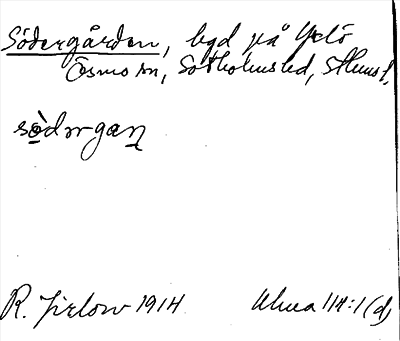 Södergården, bgd på Yxlö
Ösmo sn, Sotholms hd, Sthms l.
sòdərgaɳ
R. Jirlow 1914 Uhvea 114:1 (d)